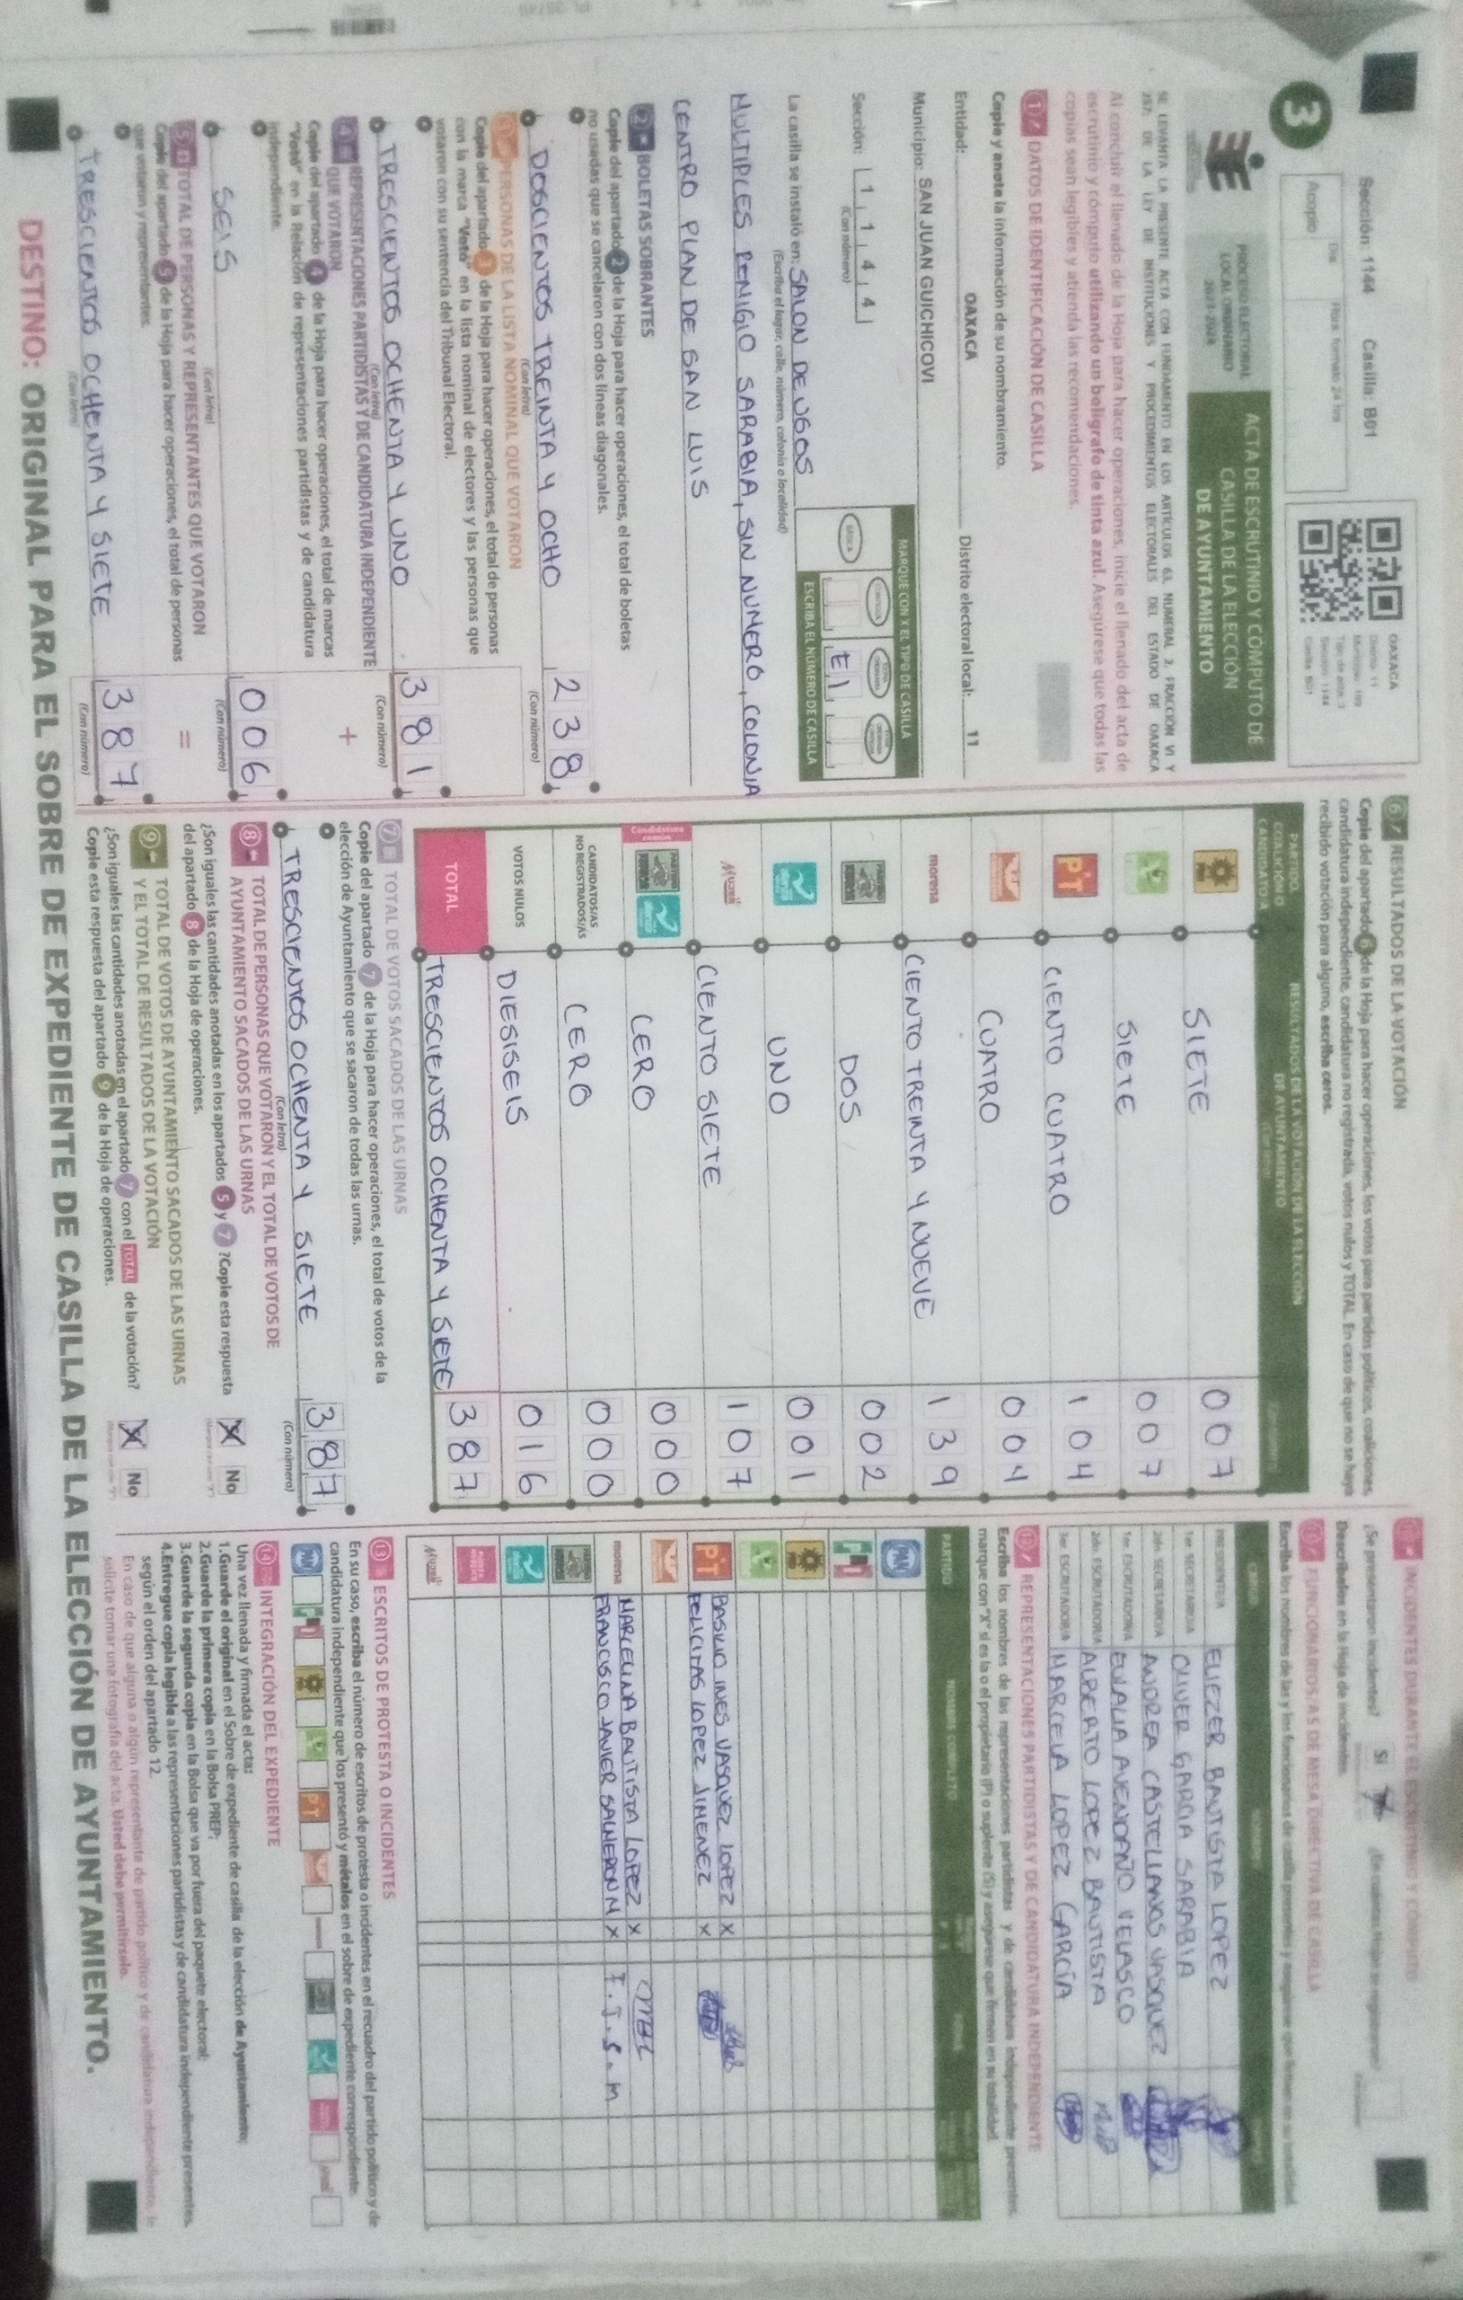 Sección: 1144 Casilla: B01
3
Acopio
Día
Hora formato 24 hrs
PROCESO ELECTORAL
LOCAL ORDINARIO
2023-2024
OAXACA
ACTA DE ESCRUTINIO Y CÓMPUTO DE
CASILLA DE LA ELECCIÓN
DE AYUNTAMIENTO
SE LEVANTA LA PRESENTE ACTA CON FUNDAMENTO EN LOS ARTÍCULOS 63, NUMERAL 2, FRACCIÓN VI Y
DE LA LEY DE INSTITUCIONES Y PROCEDIMIENTOS ELECTORALES DEL ESTADO DE OAXACA
Al concluir el llenado de la Hoja para hacer operaciones, inicie el llenado del acta de
escrutinio y cómputo utilizando un bolígrafo de tinta azul. Asegúrese que todas las
copias sean legibles y atienda las recomendaciones.
1 DATOS DE IDENTIFICACIÓN DE CASILLA
Copie y anote la información de su nombramiento.
Entidad: OAXACA Distrito electoral local: 11
Municipio: SAN JUAN GUICHICOVI
Sección: 1 1 4 4
(Con número)
MARQUE CON X EL TIPO DE CASILLA
BÁSICA
E1
ESCRIBA EL NÚMERO DE CASILLA
La casilla se instaló en: SALON DE USOS
(Escriba el lugar, calle, número, colonia o localidad)
MULTIPLES REMIGIO SARABIA, SIN NUMERO, COLONIA
CENTRO PLAN DE SAN LUIS
2 BOLETAS SOBRANTES
Copie del apartado 2 de la Hoja para hacer operaciones, el total de boletas
no usadas que se cancelaron con dos líneas diagonales.
DOSCIENTOS TREINTA Y OCHO 238
(Con letra) (Con número)
3 PERSONAS DE LA LISTA NOMINAL QUE VOTARON
Copie del apartado 3 de la Hoja para hacer operaciones, el total de personas
con la marca "Votó" en la lista nominal de electores y las personas que
votaron con su sentencia del Tribunal Electoral.
TRESCIENTOS OCHENTA Y UNO 381
(Con letra) (Con número)
+
4 REPRESENTACIONES PARTIDISTAS Y DE CANDIDATURA INDEPENDIENTE
QUE VOTARON
Copie del apartado 4 de la Hoja para hacer operaciones, el total de marcas
"Votó" en la Relación de representaciones partidistas y de candidatura
independiente.
SEIS 006
(Con letra) (Con número)
=
5 TOTAL DE PERSONAS Y REPRESENTANTES QUE VOTARON
Copie del apartado 5 de la Hoja para hacer operaciones, el total de personas
que votaron y representantes.
TRESCIENTOS OCHENTA Y SIETE 387
(Con letra) (Con número)
6 RESULTADOS DE LA VOTACIÓN
Copie del apartado 6 de la Hoja para hacer operaciones, los votos para partidos políticos, coaliciones,
candidatura independiente, candidatura no registrada, votos nulos y TOTAL. En caso de que no se haya
recibido votación para alguno, escriba ceros.
PARTIDO,
COALICIÓN O
CANDIDATO/A
RESULTADOS DE LA VOTACIÓN DE LA ELECCIÓN
DE AYUNTAMIENTO
SIETE 007
SIETE 007
PT CIENTO CUATRO 104
CUATRO 004
morena CIENTO TREINTA Y NUEVE 139
DOS 002
UNO 001
CIENTO SIETE 107
Candidatura común CERO 000
CANDIDATOS/AS
NO REGISTRADOS/AS CERO 000
VOTOS NULOS DIESISEIS 016
TOTAL TRESCIENTOS OCHENTA Y SIETE 387
7 TOTAL DE VOTOS SACADOS DE LAS URNAS
Copie del apartado 7 de la Hoja para hacer operaciones, el total de votos de la
elección de Ayuntamiento que se sacaron de todas las urnas.
TRESCIENTOS OCHENTA Y SIETE 387
(Con letra) (Con número)
8 TOTAL DE PERSONAS QUE VOTARON Y EL TOTAL DE VOTOS DE
AYUNTAMIENTO SACADOS DE LAS URNAS
¿Son iguales las cantidades anotadas en los apartados 5 y 7 ?Copie esta respuesta
del apartado 8 de la Hoja de operaciones.
X No
9 TOTAL DE VOTOS DE AYUNTAMIENTO SACADOS DE LAS URNAS
Y EL TOTAL DE RESULTADOS DE LA VOTACIÓN
¿Son iguales las cantidades anotadas en el apartado 7 con el TOTAL de la votación?
Copie esta respuesta del apartado 9 de la Hoja de operaciones.
X No
INCIDENTES DURANTE EL ESCRUTINIO Y CÓMPUTO
¿Se presentaron incidentes? Sí
Descríbalos en la Hoja de incidentes
FUNCIONARIOS/AS DE MESA DIRECTIVA DE CASILLA
ELIEZER BAUTISTA LOPEZ
1er. SECRETARIO/A OLIVER GARCIA SARABIA
2do. SECRETARIO/A ANDREA CASTELLANOS VASQUEZ
1er. ESCRUTADOR/A EULALIA AVENDAÑO VELASCO
2do. ESCRUTADOR/A ALBERTO LOPEZ BAUTISTA
3er. ESCRUTADOR/A MARCELA LOPEZ GARCÍA
REPRESENTACIONES PARTIDISTAS Y DE CANDIDATURA INDEPENDIENTE
Escriba los nombres de las representaciones partidistas y de candidatura independiente presentes,
marque con "X" si es la o el propietario (P) o suplente (S) y asegúrese que firmen en su totalidad.
PARTIDO NOMBRE COMPLETO
PAN
PT BASILIO INES VASQUEZ LOPEZ X
FELICITAS LOPEZ JIMENEZ X
morena MARCELINA BAUTISTA LOPEZ X
FRANCISCO JAVIER SALMERON M X F.J.S.M
13 ESCRITOS DE PROTESTA O INCIDENTES
En su caso, escriba el número de escritos de protesta o incidentes en el recuadro del partido político y de
candidatura independiente que los presentó y métalos en el sobre de expediente correspondiente.
PAN
PT
14 INTEGRACIÓN DEL EXPEDIENTE
Una vez llenada y firmada el acta:
1.Guarde el original en el Sobre de expediente de casilla de la elección de Ayuntamiento;
2.Guarde la primera copia en la Bolsa PREP;
3.Guarde la segunda copia en la Bolsa que va por fuera del paquete electoral;
4.Entregue copia legible a las representaciones partidistas y de candidatura independiente presentes,
según el orden del apartado 12.
En caso de que alguna o algún representante de partido político y de candidatura independiente, le
solicite tomar una fotografía del acta, Usted debe permitírselo.
DESTINO: ORIGINAL PARA EL SOBRE DE EXPEDIENTE DE CASILLA DE LA ELECCIÓN DE AYUNTAMIENTO.